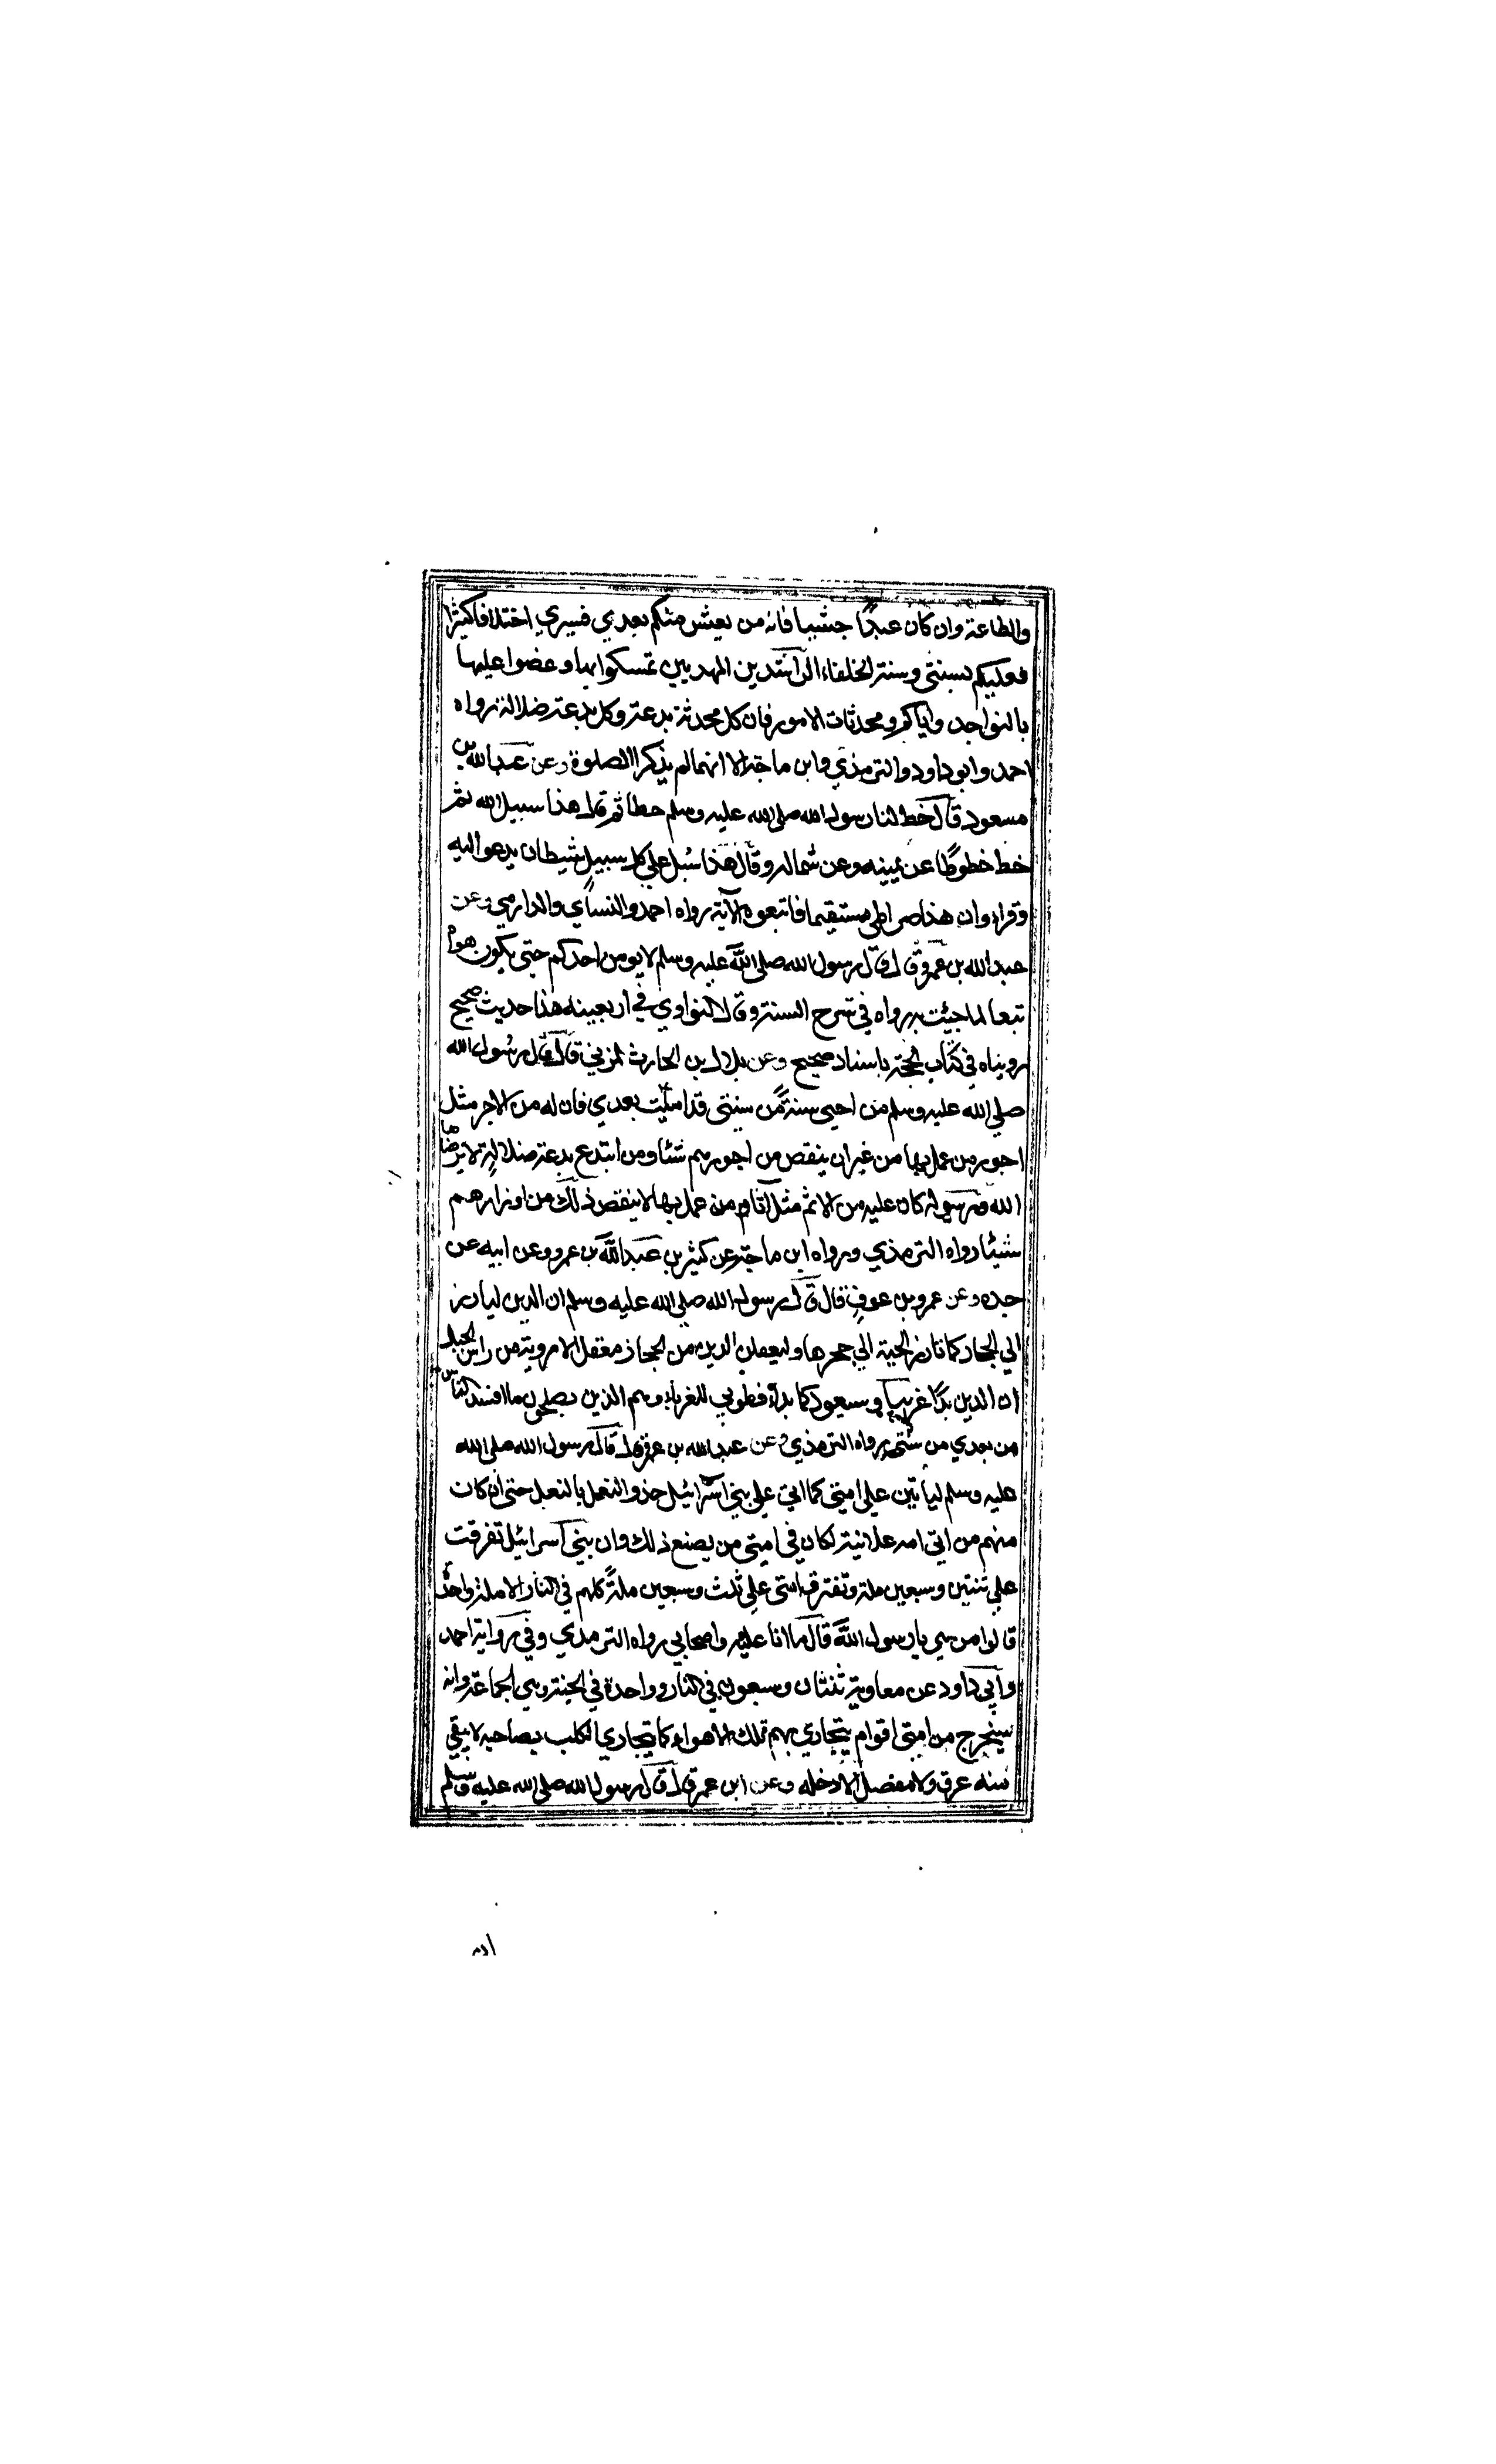 والطاعة وان كان عبدًا حبشيا فانه من يعش منكم بعدي فسيري اختلافا كثيرا
فعليكم بسنتي وسنة الخلفاء الراشدين المهديين تمسكوا بها وعضوا عليها
بالنواجد واياكم ومحدثات الامور فان كل محدثة بدعة وكل بدعة ضلالة رواه
احمد وابو داود والترمذي وابن ماجة الا انهما لم يذكرا الصلوة وعن عبد الله بن
مسعود قال خط لنا رسول الله صلي الله عليه وسلم خطا ثم قال هذا سبيل الله ثم
خط خطوطًا عن يمينه وعن شماله وقال هذا سبل علي كل سبيل شيطان يدعو اليه
وقراء وان هذا صراطي مستقيما فاتبعوه الآية رواه احمد والنسائي والدارمي وعن
عبد الله بن عمرو قال قال رسول الله صلي الله عليه وسلم لا يومن احدكم حتي يكون هواه
تبعا لما جيئت به رواه في شرح السنة وقال النواوي في اربعينه هذا حديث صحيح
رويناه في كتاب الحجة باسناد صحيح وعن بلال بن الحارث المزني قال قال رسول الله
صلي الله عليه وسلم من احيي سنة من سنتي قد اميتت بعدي فان له من الاجر مثل
اجور من عمل بها من غير ان ينقص من اجورهم شئا ومن ابتدع بدعة ضلالة لا يرضاها
الله ورسوله كان عليه من الاثم مثل آثام من عمل بها لا ينقص ذلك من اوزارهم
شيئا رواه الترمذي ورواه ابن ماجة عن كثير بن عبد الله بن عمرو وعن ابيه عن
جده وعن عمرو بن عوف قال قال رسول الله صلي الله عليه وسلم ان الدين ليارز
الي الحجاز كما تارز الحية الي جحرها وليعقلن الدين من الحجاز معقل الاروية من راس الجبل
ان الدين بدًا غريبا وسيعود كما بدأ فطوبي للغرباء وهم الذين يصلحون ما افسد الناس
من بعدي من سنتي رواه الترمذي وعن عبد الله بن عمرو قال قال رسول الله صلي الله
عليه وسلم ليأتين علي امتي كما اتي علي بني اسرائيل حذو النعل بالنعل حتي ان كان
منهم من اتي امه علانية لكان في امتي من يصنع ذلك وان بني اسرائيل تفرقت
علي ثنتين وسبعين ملة وتفترق امتي علي ثلث وسبعين ملةً كلهم في النار الا ملة واحدة
قالوا من هي يا رسول الله قال ما انا عليه واصحابي رواه الترمذي وفي رواية احمد
وأبي داود عن معاوية ثنتان وسبعون في النار وواحدة في الجنة وهي الجماعة وانه
سيخرج من امتي اقوام يتجاري بهم تلك الاهواء كما يتجاري الكلب بصاحبه لا يبقي
منه عرق ولا مفصل الا دخله وعن ابن عمر قال قال رسول الله صلي الله عليه وسلم